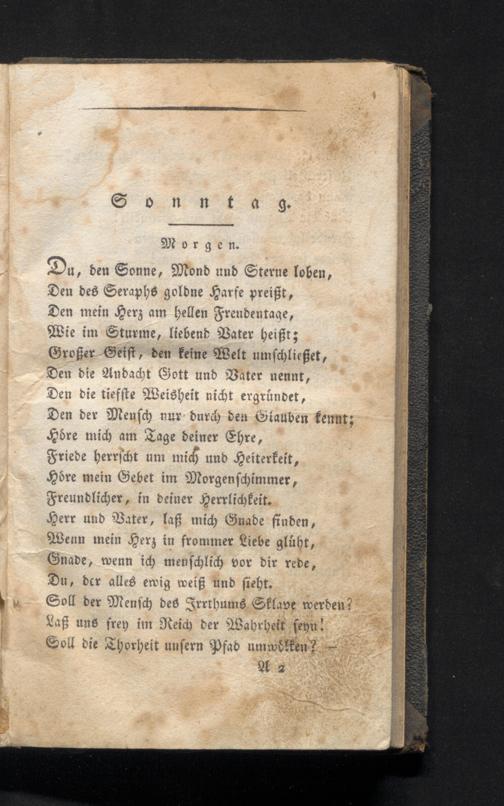 Sonntag.
Morgen.
Du, den Sonne, Mond und Sterne loben,
Den des Seraphs goldne Harfe preißt,
Den mein Herz am hellen Freudentage,
Wie im Sturme, liebend Vater heißt;
Großer Geist, den keine Welt umschließet,
Den die Andacht Gott und Vater nennt,
Den die tiefste Weisheit nicht ergründet,
Den der Mensch nur durch den Glauben kennt;
Höre mich am Tage deiner Ehre,
Friede herrscht um mich und Heiterkeit,
Höre mein Gebet im Morgenschimmer,
Freundlicher, in deiner Herrlichkeit.
Herr und Vater, laß mich Gnade finden,
Wenn mein Herz in frommer Liebe glüht,
Gnade, wenn ich menschlich vor dir rede,
Du, der alles ewig weiß und sieht.
Soll der Mensch des Irrthums Sklave werden?
Laß uns frey im Reich der Wahrheit seyn!
Soll die Thorheit unsern Pfad umwölken? —
A 2